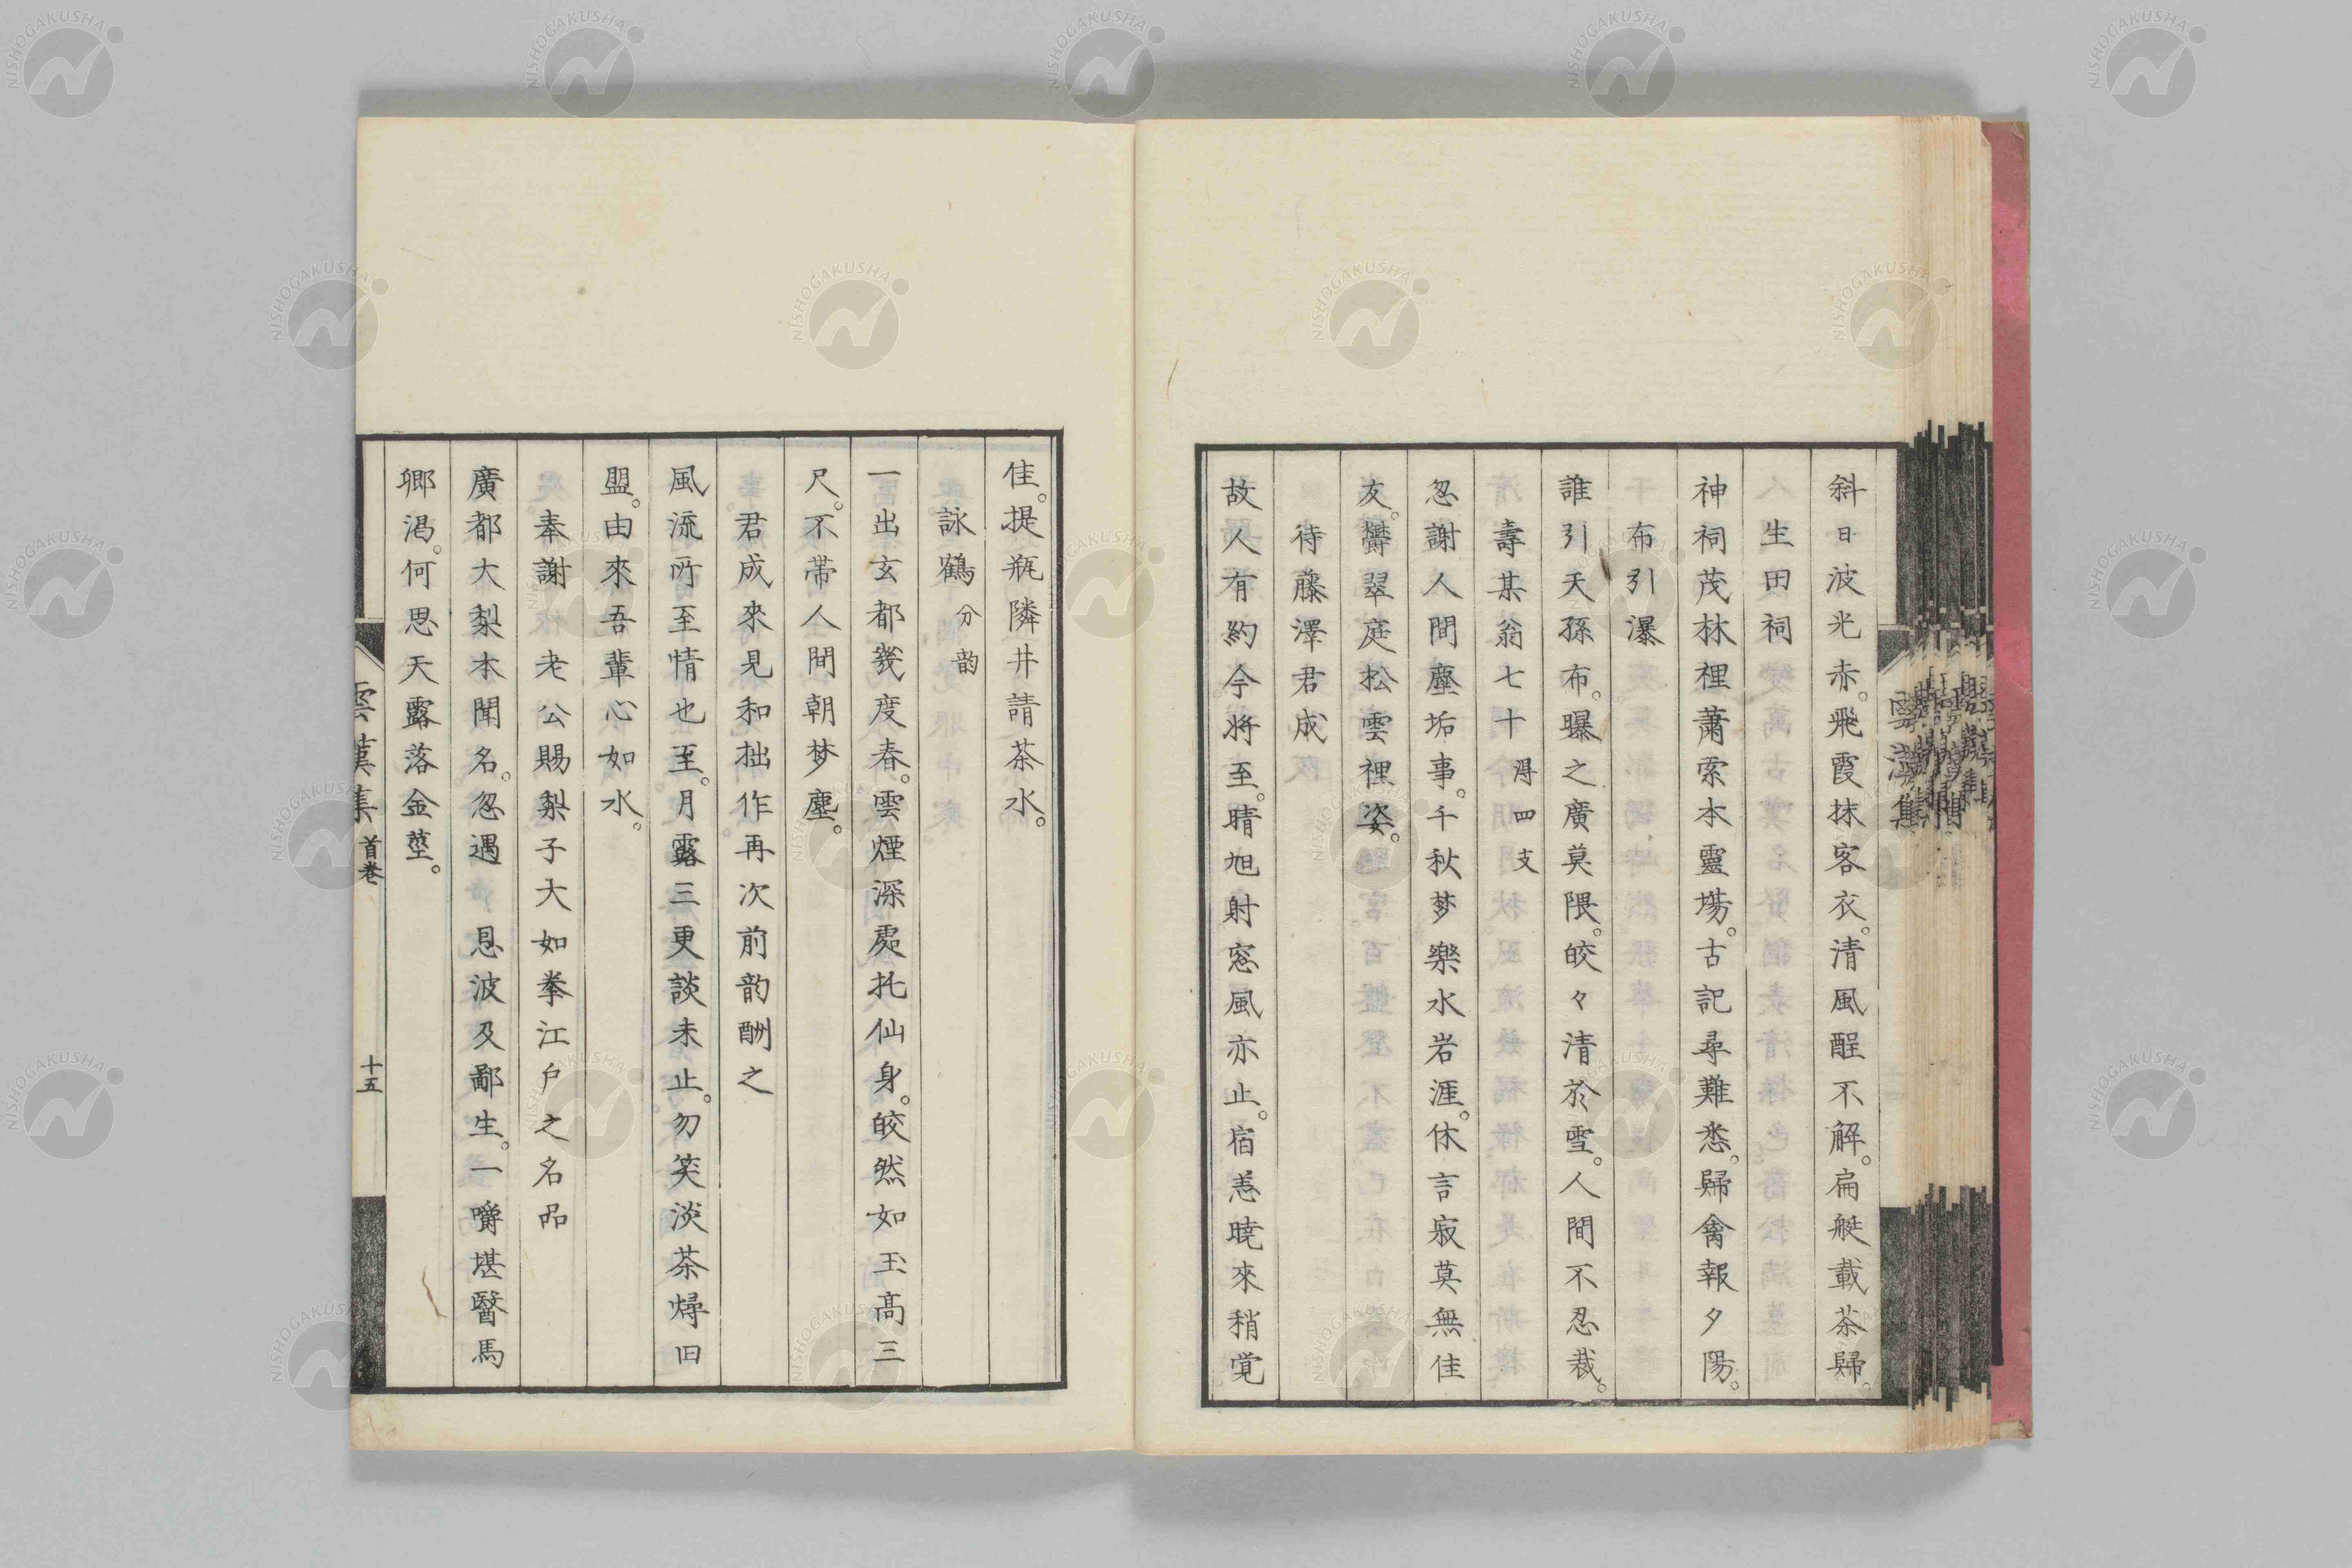 斜日波光赤。飛霞抹客衣。清風酲不解。扁艇載茶歸。
生田祠
神祠茂林裡蕭索本靈場。古記尋難悉。歸禽報夕陽。
布引瀑
誰引天孫布。曝之廣莫隈。皎々清於雪。人間不忍裁。
壽某翁七十 得四支
忽謝人間塵垢事。千秋夢樂水岩涯。休言寂莫無佳
友。欝翠庭松雲裡姿。
待藤澤君成
故人有約今将至。晴旭射窓風亦止。宿恙暁來稍覚
佳。提瓶隣井請茶水。
詠鶴 分韵
一出玄都幾度春。雲煙深處托仙身。皎然如玉高三
尺。不帯人間朝梦塵。
君成來見和拙作再次前韵酬之
風流所至情也至。月露三更談未止。勿笑淡茶燖旧
盟。由來吾輩心如水。
奉謝 老公賜梨子大如拳江戸之名品
廣都大梨本聞名。忽遇 恩波及鄙生。一嚼堪醫馬
卿渇。何思天露落金莖。
雲漢集 首巻 十五
NISHOGAKUSHA